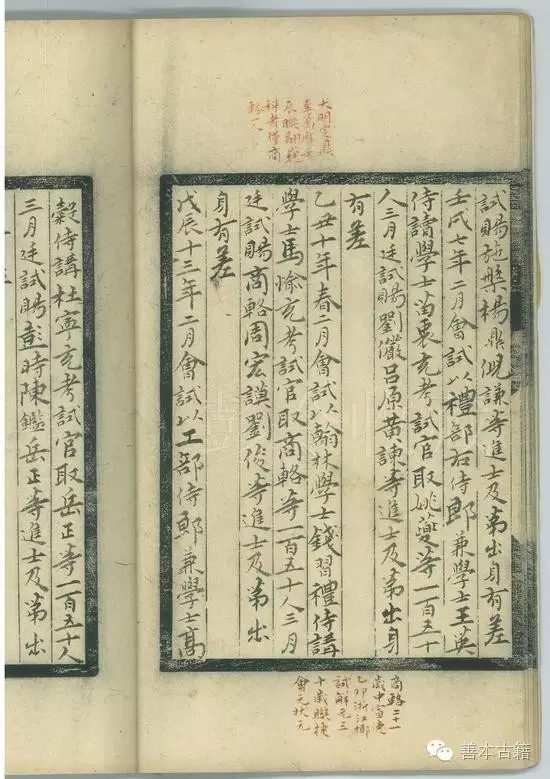 大明定鼎
科者僅商
輅一人
試賜施槃楊鼎倪謙等進士及第出身有差
壬戌七年二月會試以禮部右侍郎兼學士王英
侍讀學士苗衷充考試官取姚夔等一百五十
人三月廷試賜劉儼呂原黃諫等進士及第出身
有差
乙丑十年春二月會試以翰林學士錢習禮侍講
學士馬愉充考試官取商輅等一百五十人三月
廷試賜商輅周宏謨劉俊等進士及第出
身有差
戊辰十三年二月會試以工部侍郎兼學士高
商輅二十一
歲中宣德
乙卯浙江鄉
試解元三
十歲聯捷
會元狀元
穀侍講杜寧充考試官取岳正等一百五十人
三月廷試賜彭時陳鑑岳正等進士及第出
善本古籍